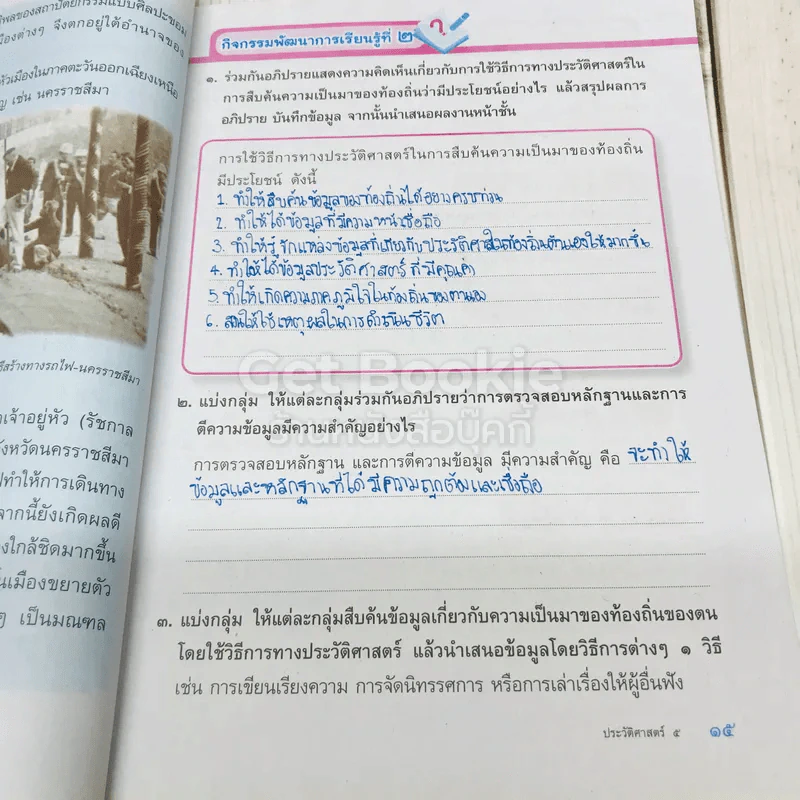 พลของสถาปัตยกรรมแบบศิลปะขอม
มืองต่างๆ จึงตกอยู่ใต้อำนาจของ
หัวเมืองในภาคตะวันออกเฉียงเหนือ
ญ เช่น นครราชสีมา
ธีสร้างทางรถไฟ-นครราชสีมา
าเจ้าอยู่หัว (รัชกาล
ังหวัดนครราชสีมา
ทำให้การเดินทาง
จากนี้ยังเกิดผลดี
ใกล้ชิดมากขึ้น
นเมืองขยายตัว
ๆ เป็นมณฑล
กิจกรรมพัฒนาการเรียนรู้ที่ ๒
๑. ร่วมกันอภิปรายแสดงความคิดเห็นเกี่ยวกับการใช้วิธีการทางประวัติศาสตร์ใน
การสืบค้นความเป็นมาของท้องถิ่นว่ามีประโยชน์อย่างไร แล้วสรุปผลการ
อภิปราย บันทึกข้อมูล จากนั้นนำเสนอผลงานหน้าชั้น
การใช้วิธีการทางประวัติศาสตร์ในการสืบค้นความเป็นมาของท้องถิ่น
มีประโยชน์ ดังนี้
1. ทำให้สืบค้นข้อมูลของท้องถิ่นได้อย่างครบถ้วน
2. ทำให้ได้ข้อมูลที่มีความหน้าเชื่อถือ
3. ทำให้รู้จักแหล่งข้อมูลที่เกี่ยวกับประวัติศาสในท้องถิ่นตนเองให้มากขึ้น
4. ทำให้ได้ข้อมูลประวัติศาสตร์ที่มีคุณค่า
5. ทำให้เกิดความภาคภูมิใจในท้องถิ่นของตนเอง
6. สอนให้ใช้เหตุผลในการดำเนินชีวิต
Get Bookie
ร้านหนังสือบุ๊คกี้
๒. แบ่งกลุ่ม ให้แต่ละกลุ่มร่วมกันอภิปรายว่าการตรวจสอบหลักฐานและการ
ตีความข้อมูลมีความสำคัญอย่างไร
การตรวจสอบหลักฐาน และการตีความข้อมูล มีความสำคัญ คือ จะทำให้
ข้อมูลและหลักฐานที่ได้มีความถูกต้องและเชื่อถือ
๓. แบ่งกลุ่ม ให้แต่ละกลุ่มสืบค้นข้อมูลเกี่ยวกับความเป็นมาของท้องถิ่นของตน
โดยใช้วิธีการทางประวัติศาสตร์ แล้วนำเสนอข้อมูลโดยวิธีการต่างๆ ๑ วิธี
เช่น การเขียนเรียงความ การจัดนิทรรศการ หรือการเล่าเรื่องให้ผู้อื่นฟัง
ประวัติศาสตร์ ๕ ๑๕